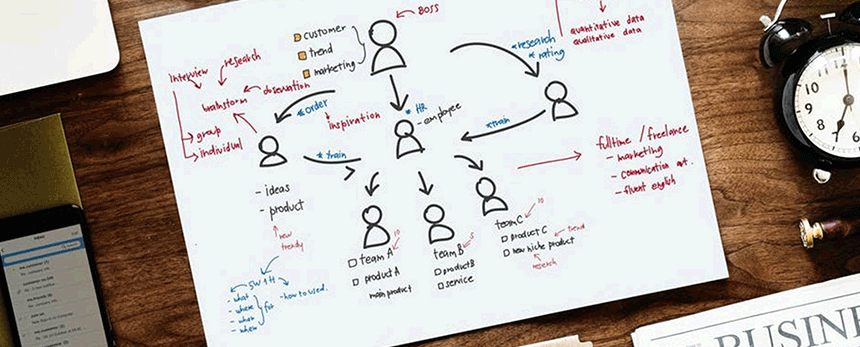 BOSS
customer
trend
marketing
quantitative data
qualitative data
*research
*rating
interview
research
observation
brainstorm
group
individual
*order
inspiration
* HR
- employee
*train
*train
fulltime / freelance
- marketing
- fluent english
- ideas
- product
new
trendy
10
team A
product A
main product
5
team B
product B
service
10
team C
product C
trend
new niche product
research
5W 1H
- what
- where
- when
for
- how to used.
Inbox
BUSINE